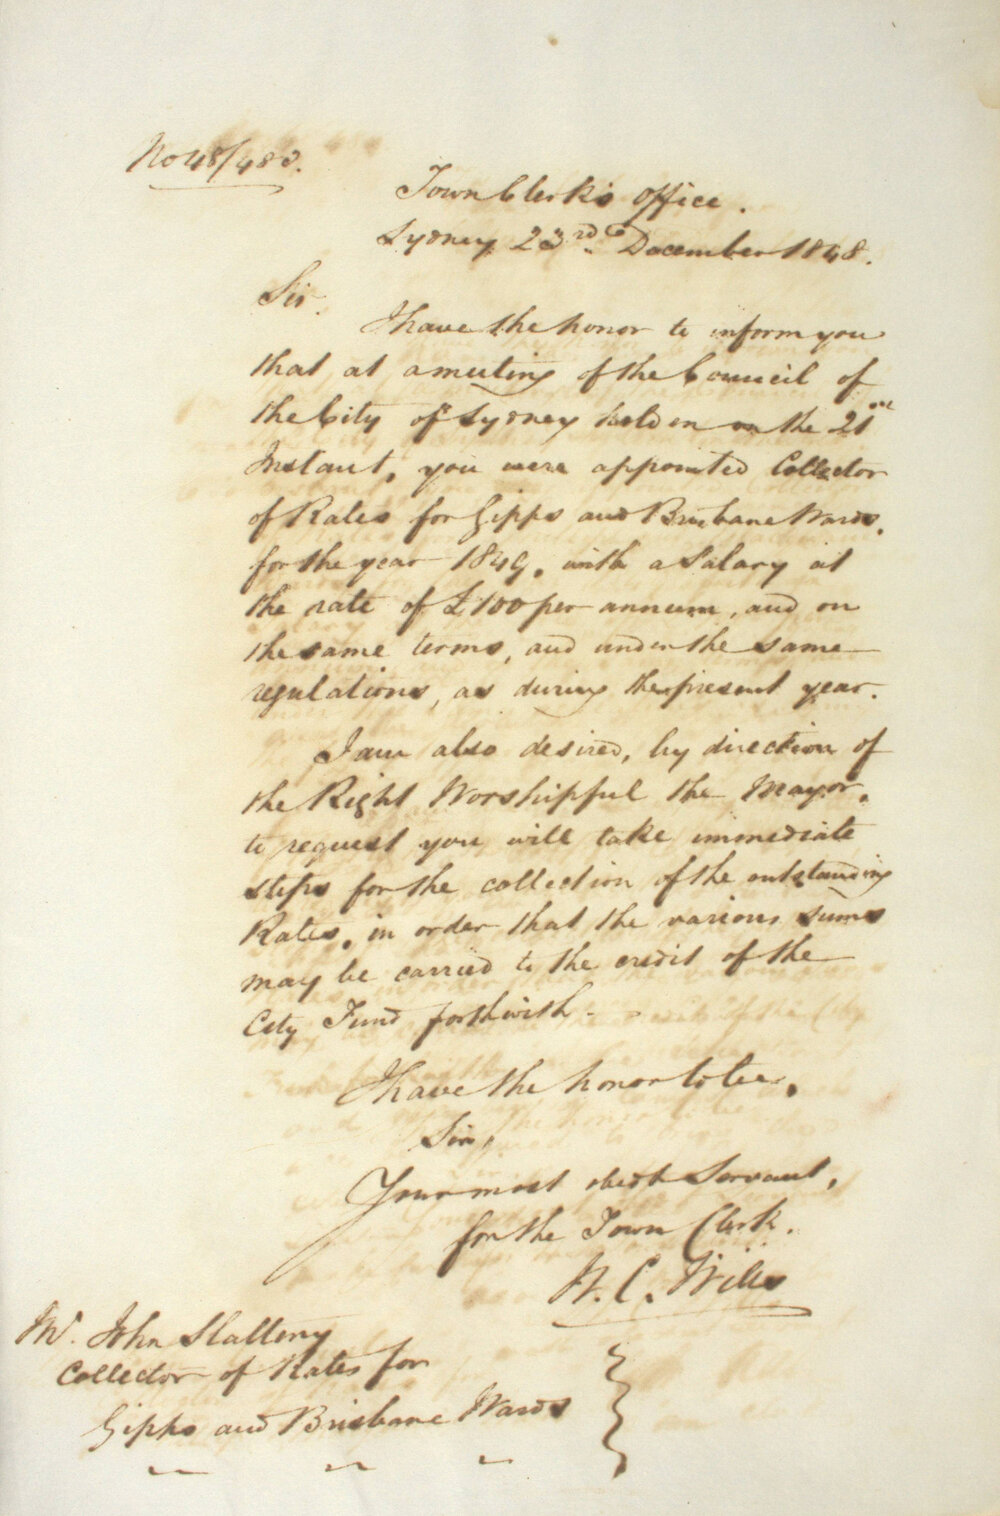 No 48/483.
Town Clerk's Office.
Sydney 23rd December 1848.
Sir.
I have the honor to inform you
that at a meeting of the Council of
the City of Sydney holden on the 21st
Instant, you were appointed Collector
of Rates for Gipps and Brisbane Wards,
for the year 1849, with a Salary at
the rate of £100 per annum, and on
the same terms, and under the same
regulations, as during the present year.
I am also desired, by direction of
the Right Worshipful the Mayor,
to request you will take immediate
steps for the collection of the outstanding
Rates, in order that the various sums
may be carried to the credit of the
City Fund forthwith.
I have the honor to be,
Sir,
Your most obedt Servant,
for the Town Clerk.
W. C. Wills
Mr. John Slattery
Collector of Rates for
Gipps and Brisbane Wards